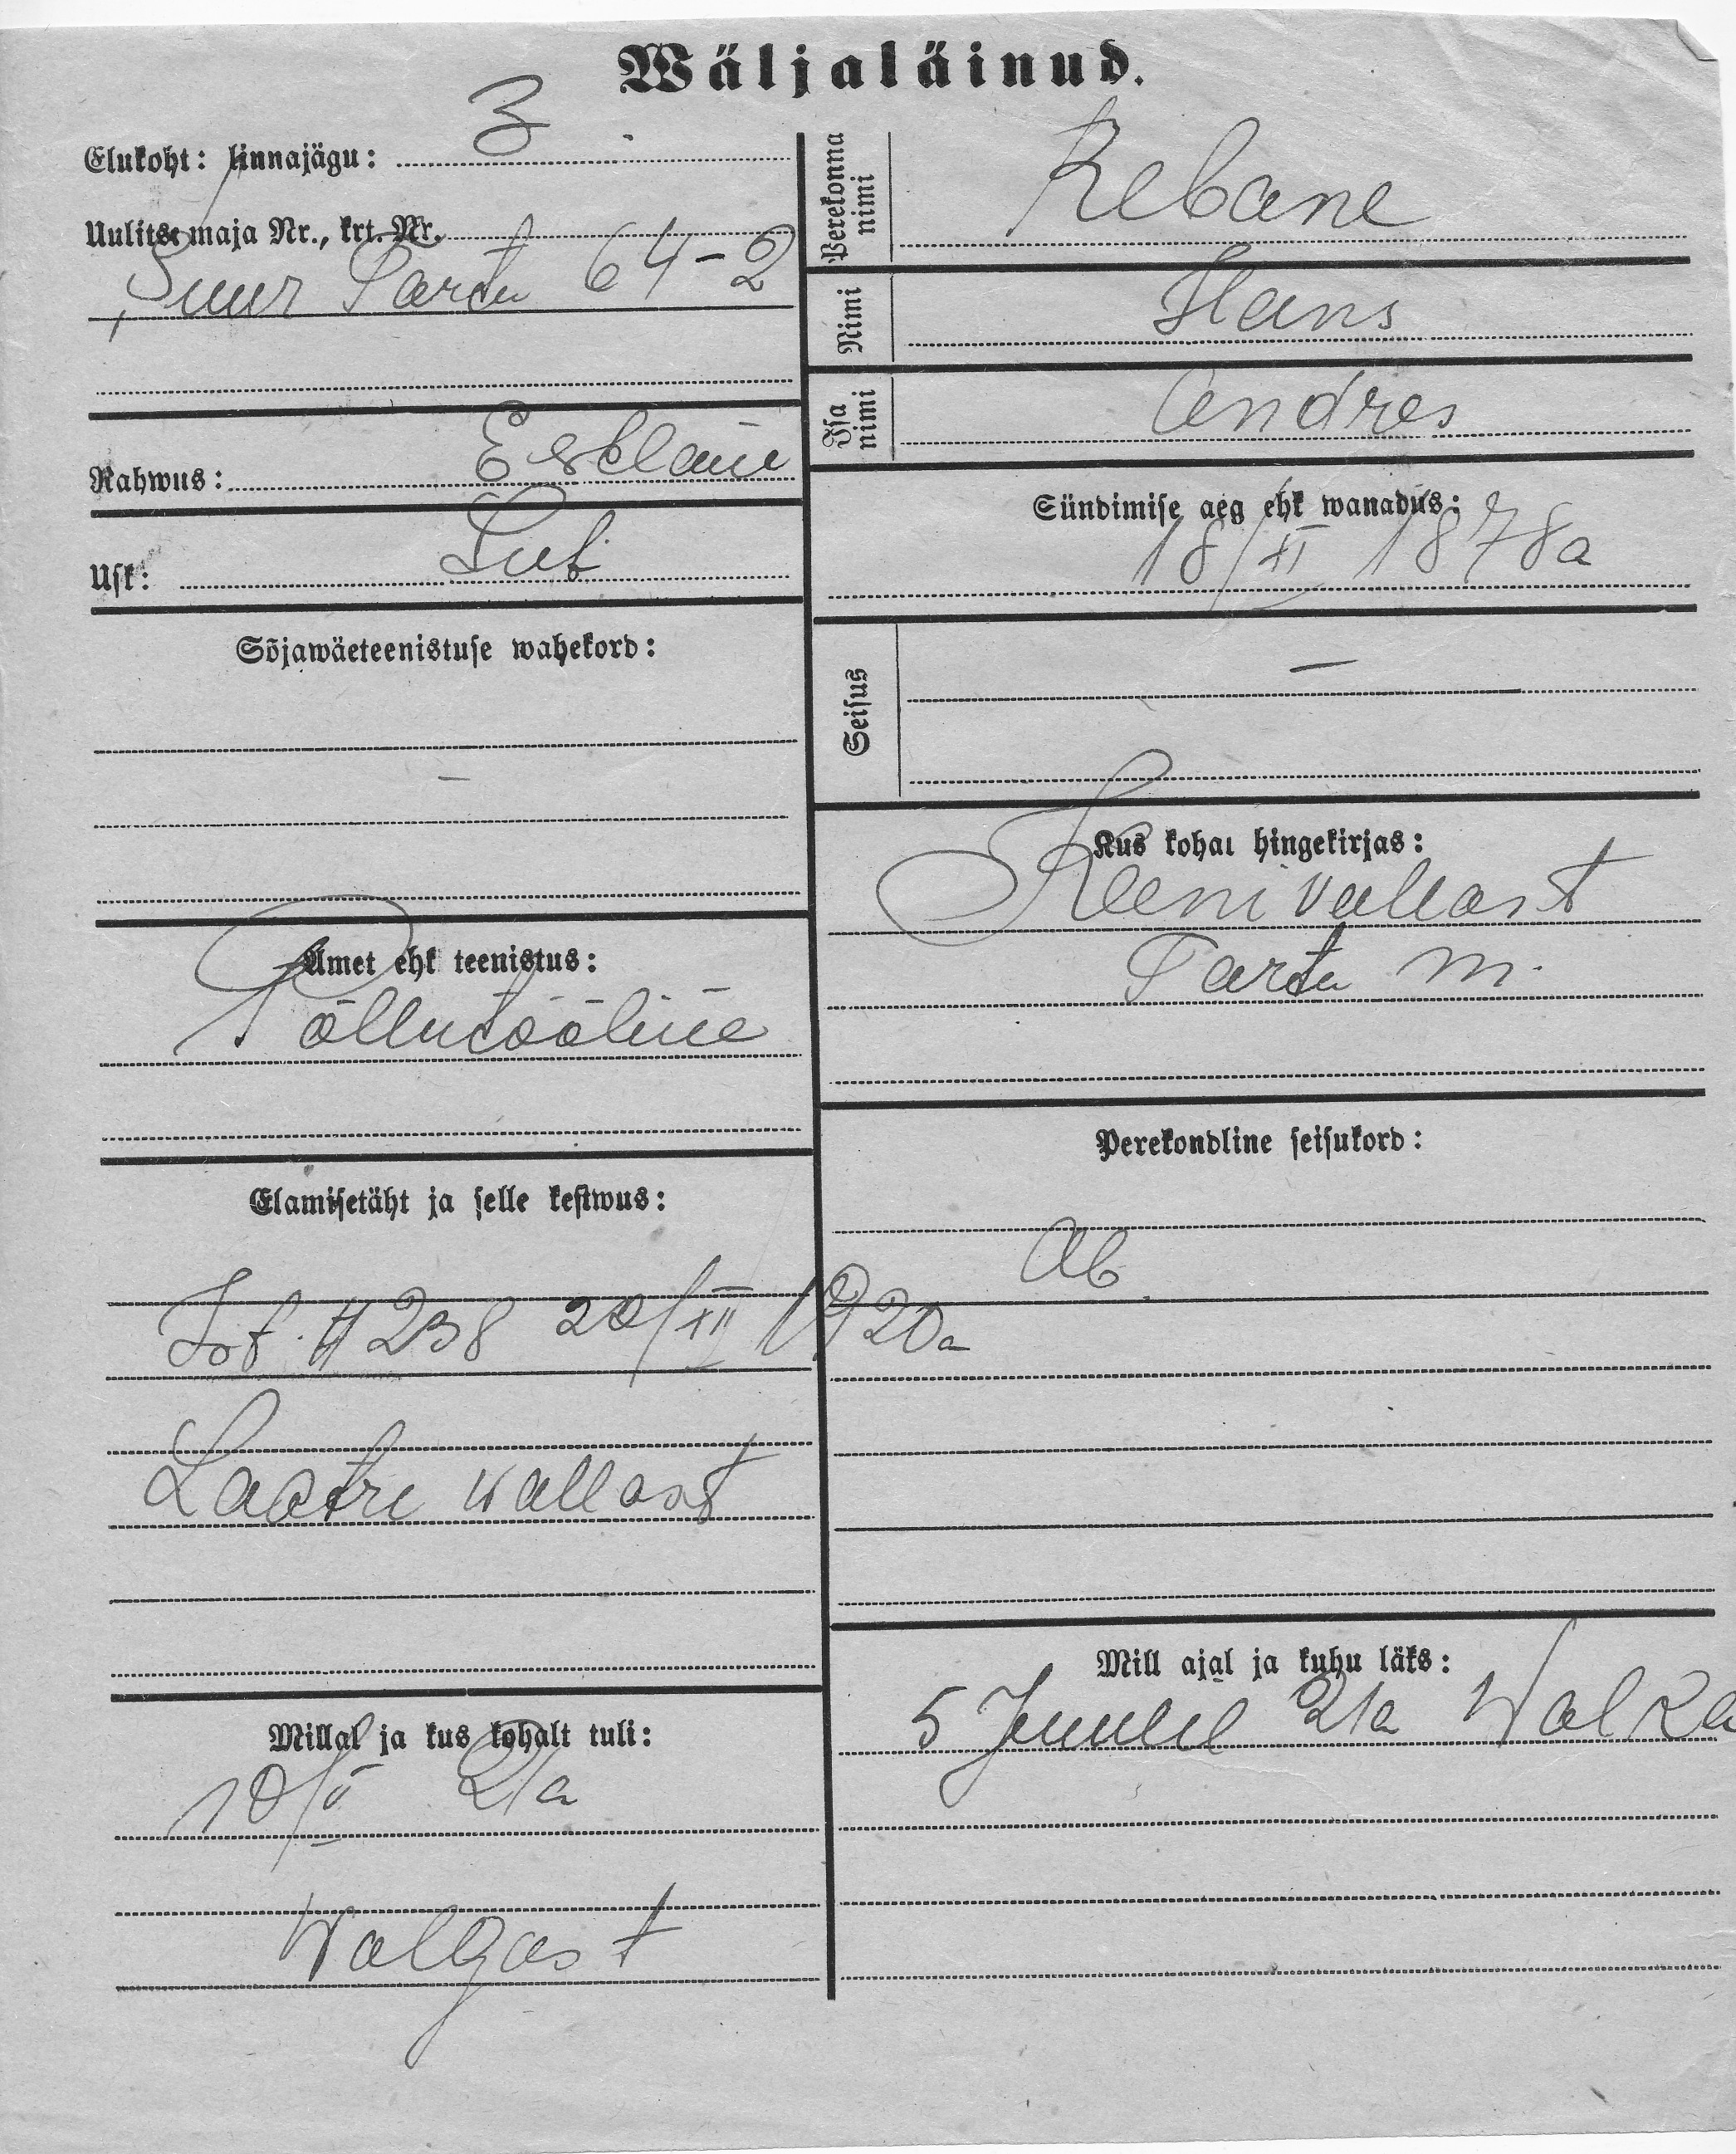 Wäljaläinud.
Elukoht: linnajägu: 3
Uulits maja Nr., krt. Nr.
Suur Tartu 64-2
Rahwus: Eestlane
Usk: Lut
Sõjawäeteenistuse wahekord:
—
Amet ehk teenistus:
Põllutööline
Elamisetäht ja selle kestwus:
№ 238 20/XII 1920a
Laatre wallast
Millal ja kus kohalt tuli:
10/V 21a
Walgast
Perekonna nimi
Rebane
Nimi
Hans
Isa nimi
Andres
Sündimise aeg ehk wanadus:
18/XI 1878a
Seisus
—
Kus kohal hingekirjas:
Keeni vallast
Tartu m.
Perekondline seisukord:
Ab
Mill ajal ja kuhu läks:
5 Juunil 21a Walka